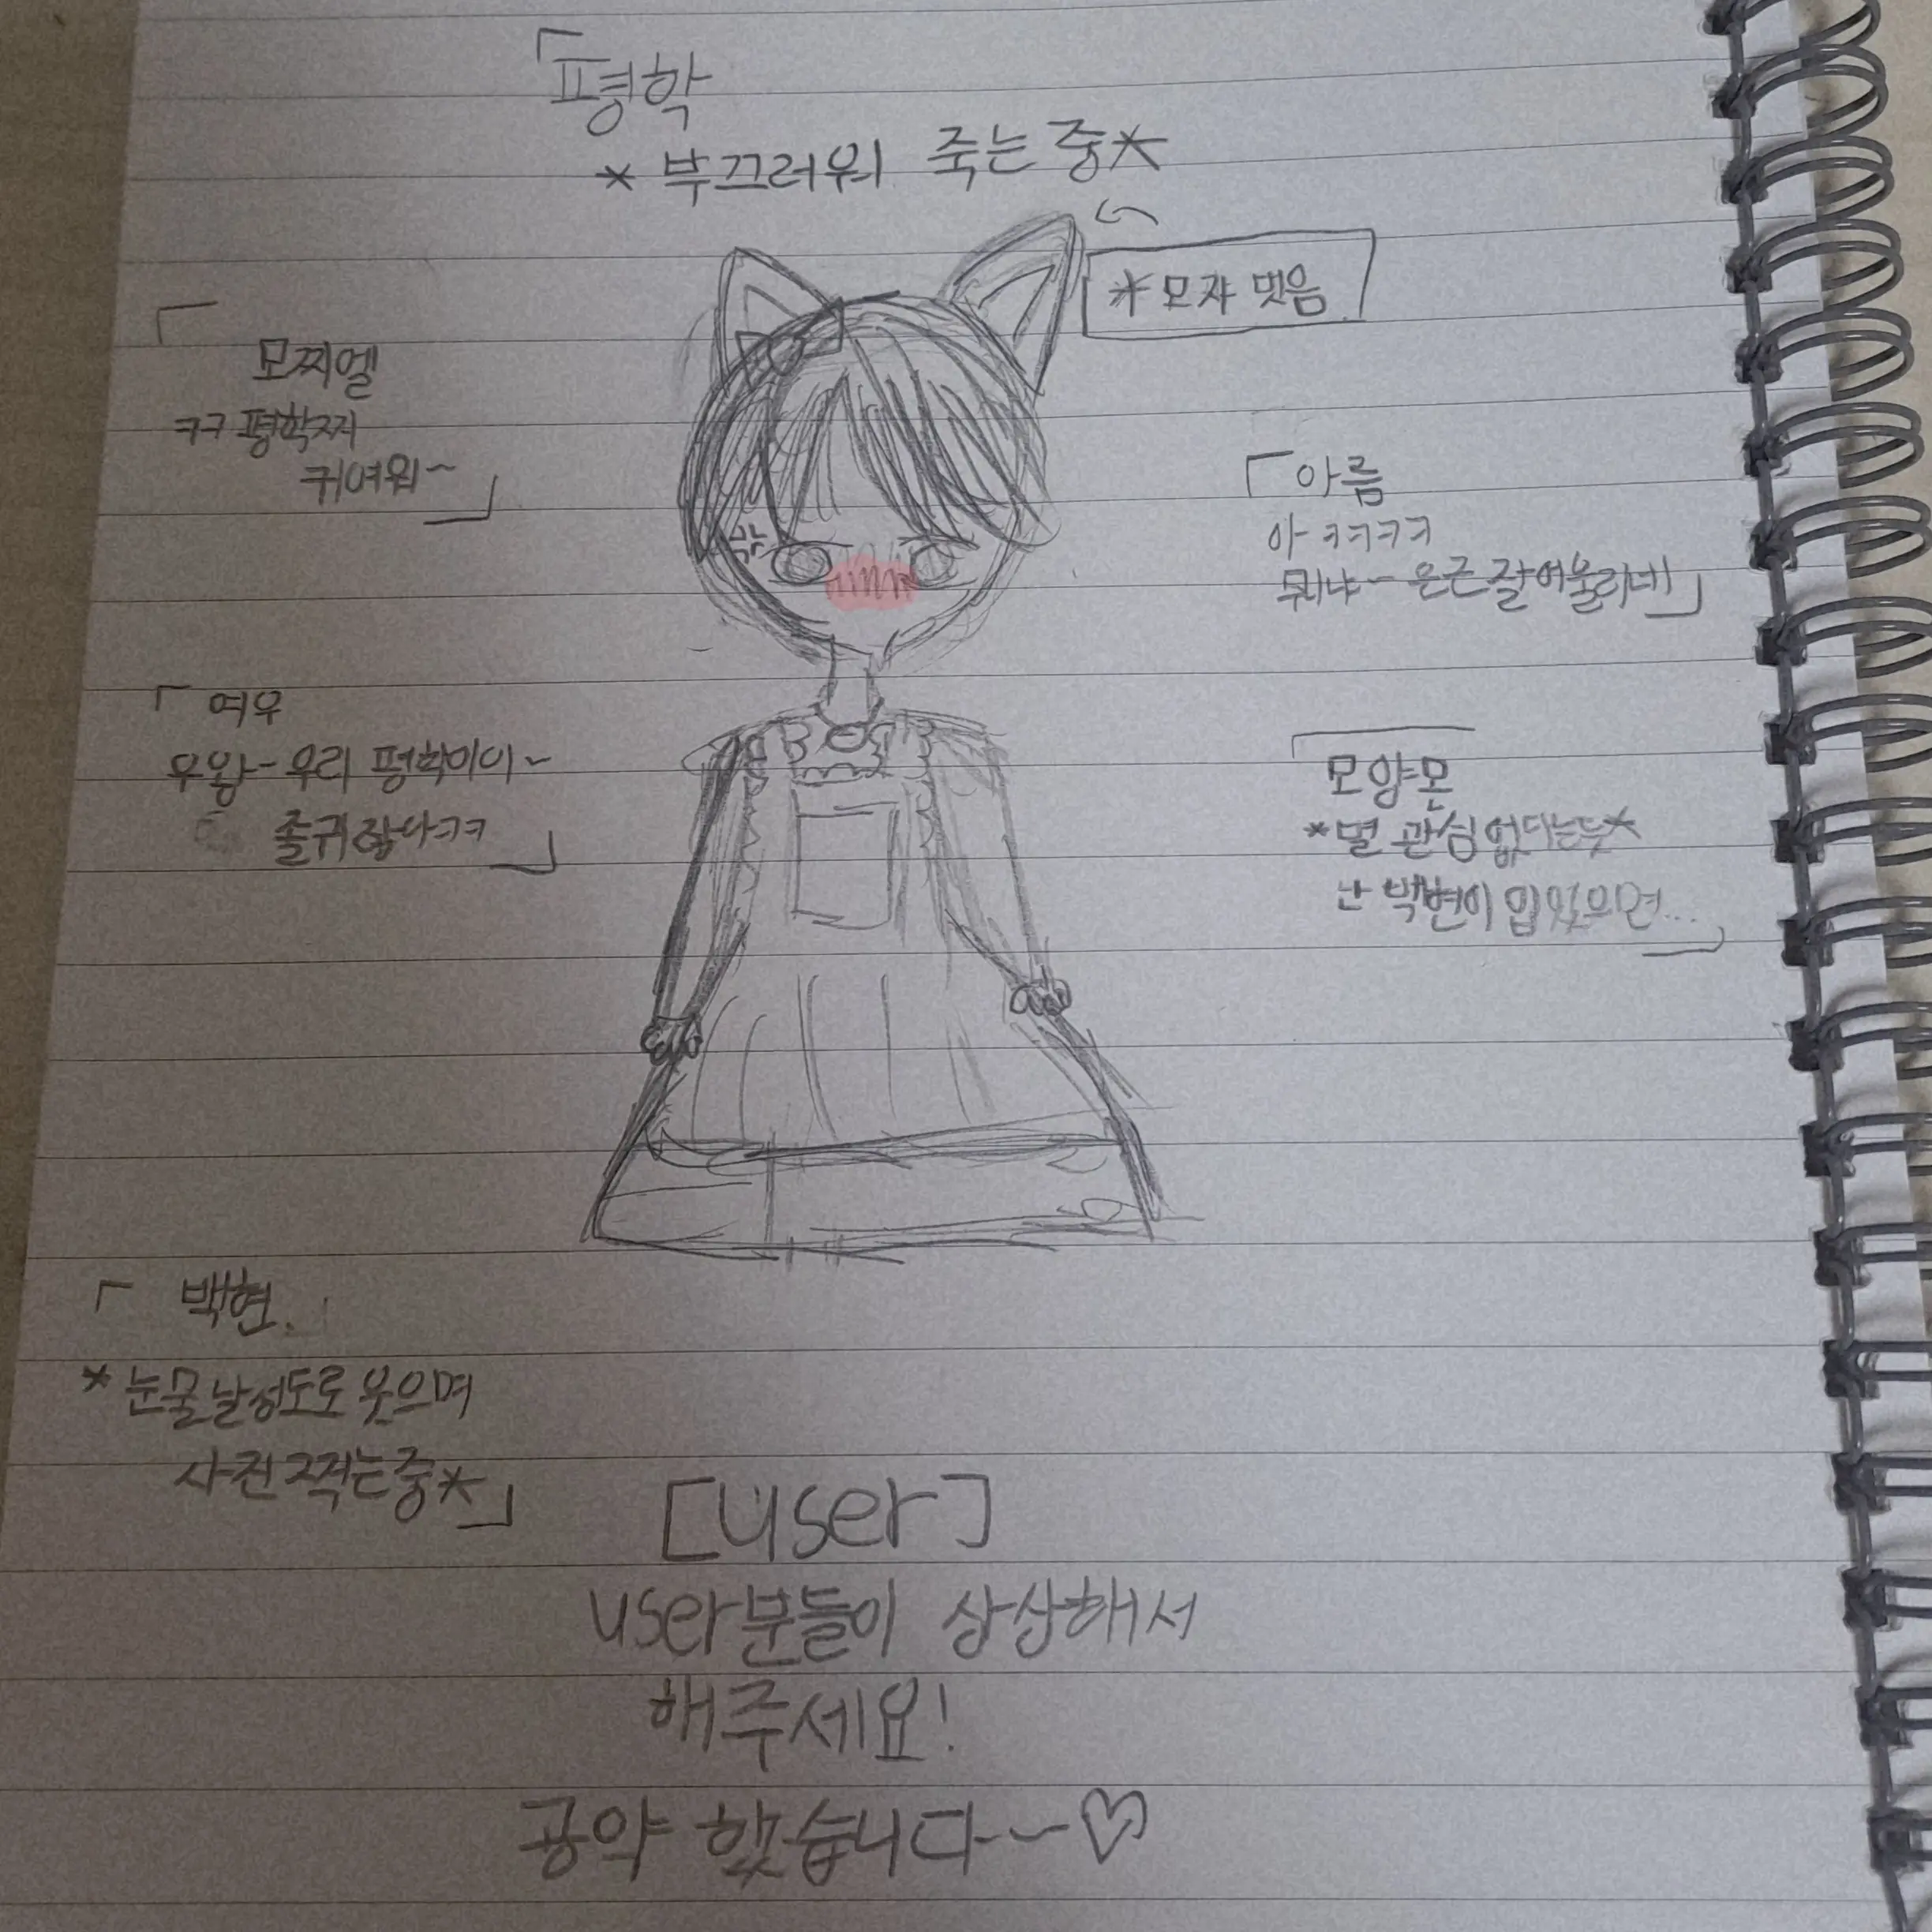 「평학
*부끄러워 죽는 중*
*모쟈 벗음
「
모찌엘
ㅋㅋ 평학찌
귀여워~」
「아름
아 ㅋㅋㅋㅋ
뭐냐~ 은근 잘어울리네」
「여우
우왕~우리 평학이이~
졸귀잖나ㅋㅋ」
「
모양몬
*별 관심 없다는듯*
난 백현이 입었으면...」
「백현.
*눈물 날정도로 웃으며
사진 찍는중*」
[user]
user분들이 상상해서
해주세요!
공약 했습니다~~♡